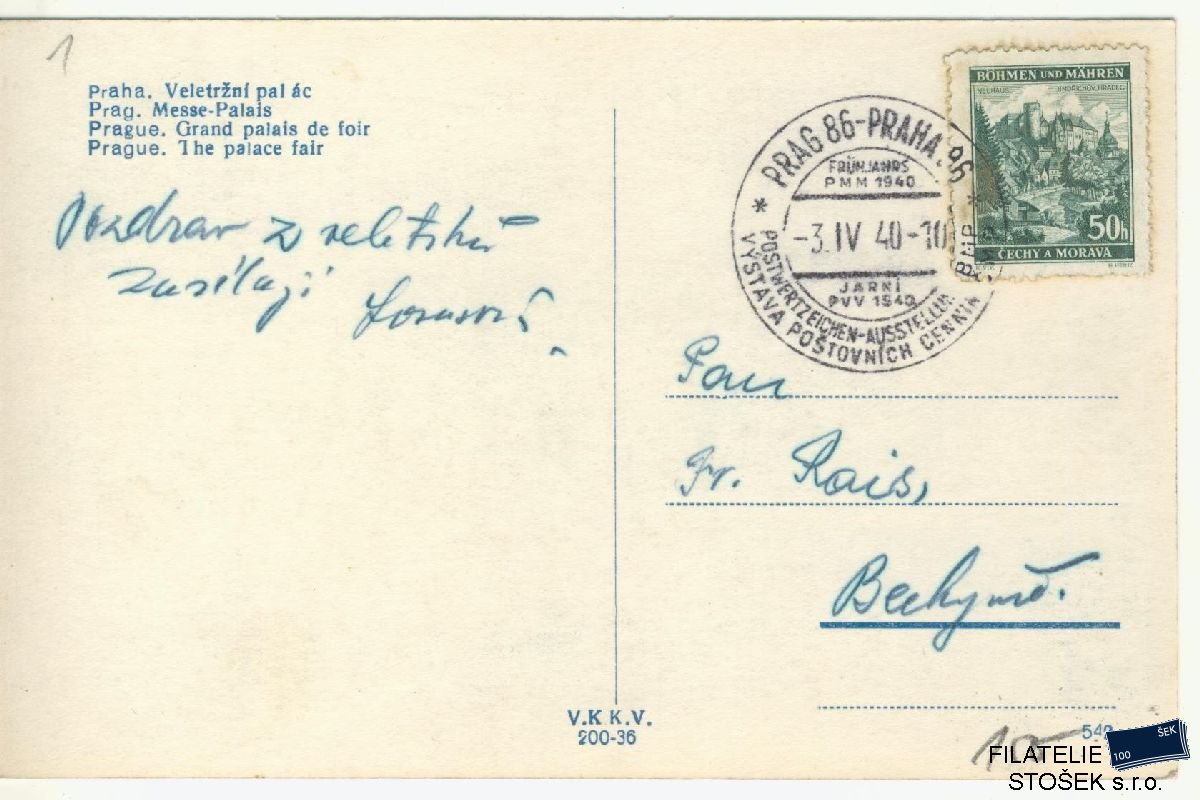 1
Praha. Veletržní palác
Prag. Messe-Palais
Prague. Grand palais de foir
Prague. The palace fair
Pozdrav z veletrhu
zasílají
BÖHMEN UND MÄHREN
NEUHAUS JINDŘICHŮV HRADEC
50h
ČECHY A MORAVA
* PRAG 86-PRAHA 86 *
FRÜHJAHRS
PMM 1940
-3.IV 40-10
JARNÍ
PVV 1940
POSTWERTZEICHEN-AUSSTELLUNG
VÝSTAVA POŠTOVNÍCH CENNIN
Pan
Fr. Rais,
Bechyně.
V.K K.V.
200-36
FILATELIE
STOŠEK s.r.o.
100 ŠEK